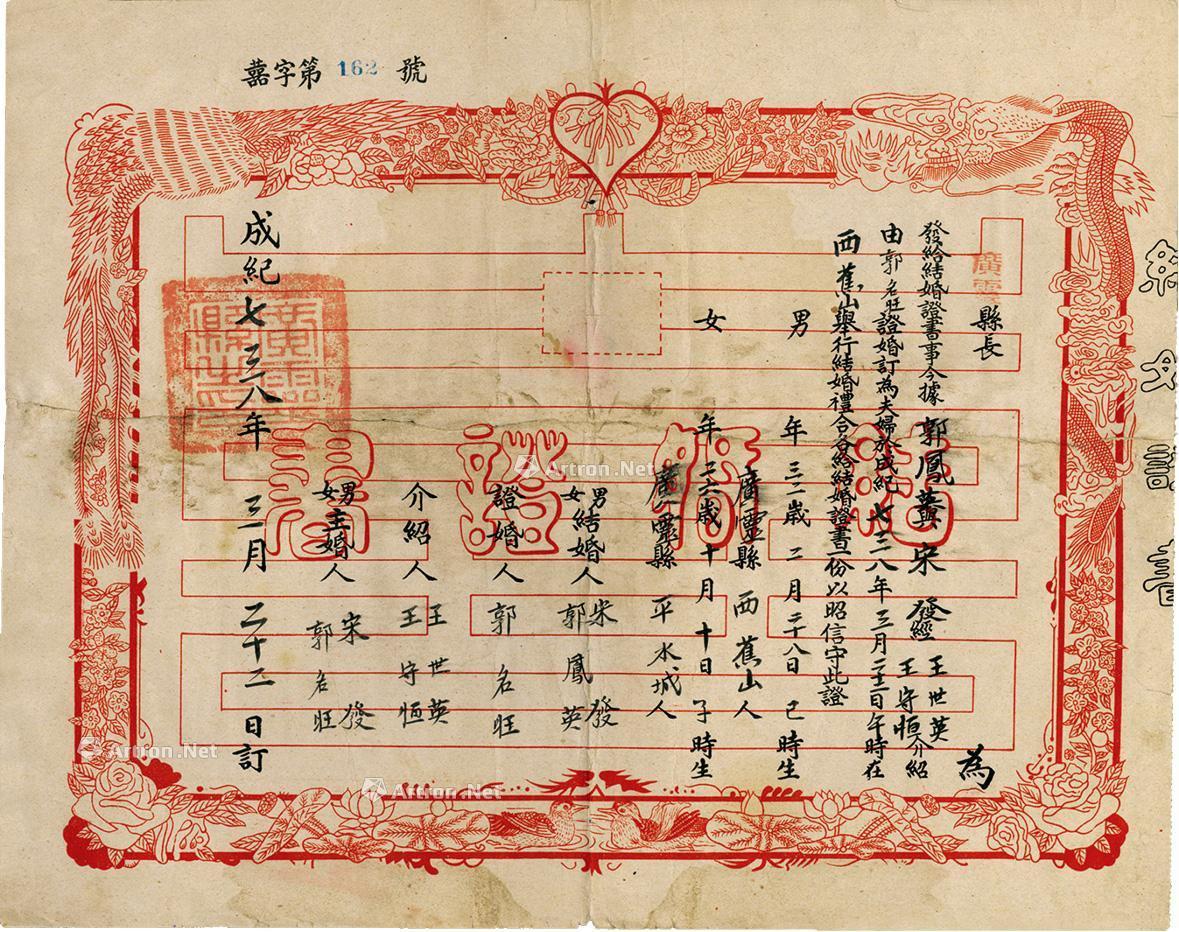 嘉字第 162 號
廣靈 縣長 為
發給結婚證書事今據 郭鳳英 宋發 經 王世英 王守恒 介紹
由郭名旺證婚訂為夫婦於成紀七三八年三月二十二日午時在
西蕉山舉行結婚禮合各給結婚證書一份以昭信守此證
男 年三二歲二月二十八日巳時生
廣靈縣西蕉山人
女 年二六歲十月十日子時生
廣靈縣平水城人
男女結婚人 宋發 郭鳳英
證婚人 郭名旺
介紹人 王世英 王守恒
男女主婚人 宋發 郭名旺
成紀七三八年三月二十二日訂
結婚證書
Artron.Net
Artron.Net
Artron.Net